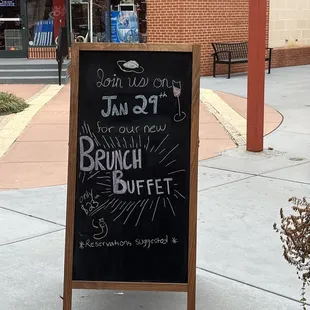 join us on
JAN 29th
for our new
BRUNCH
BUFFET
only
$25
*Reservations suggested*